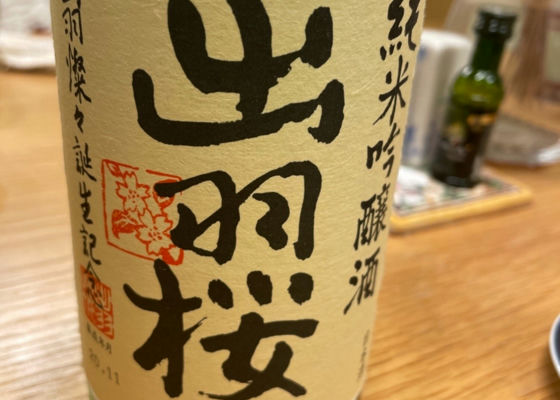 純米吟醸酒
出羽桜
羽燦々誕生記念
製造年月
20.11